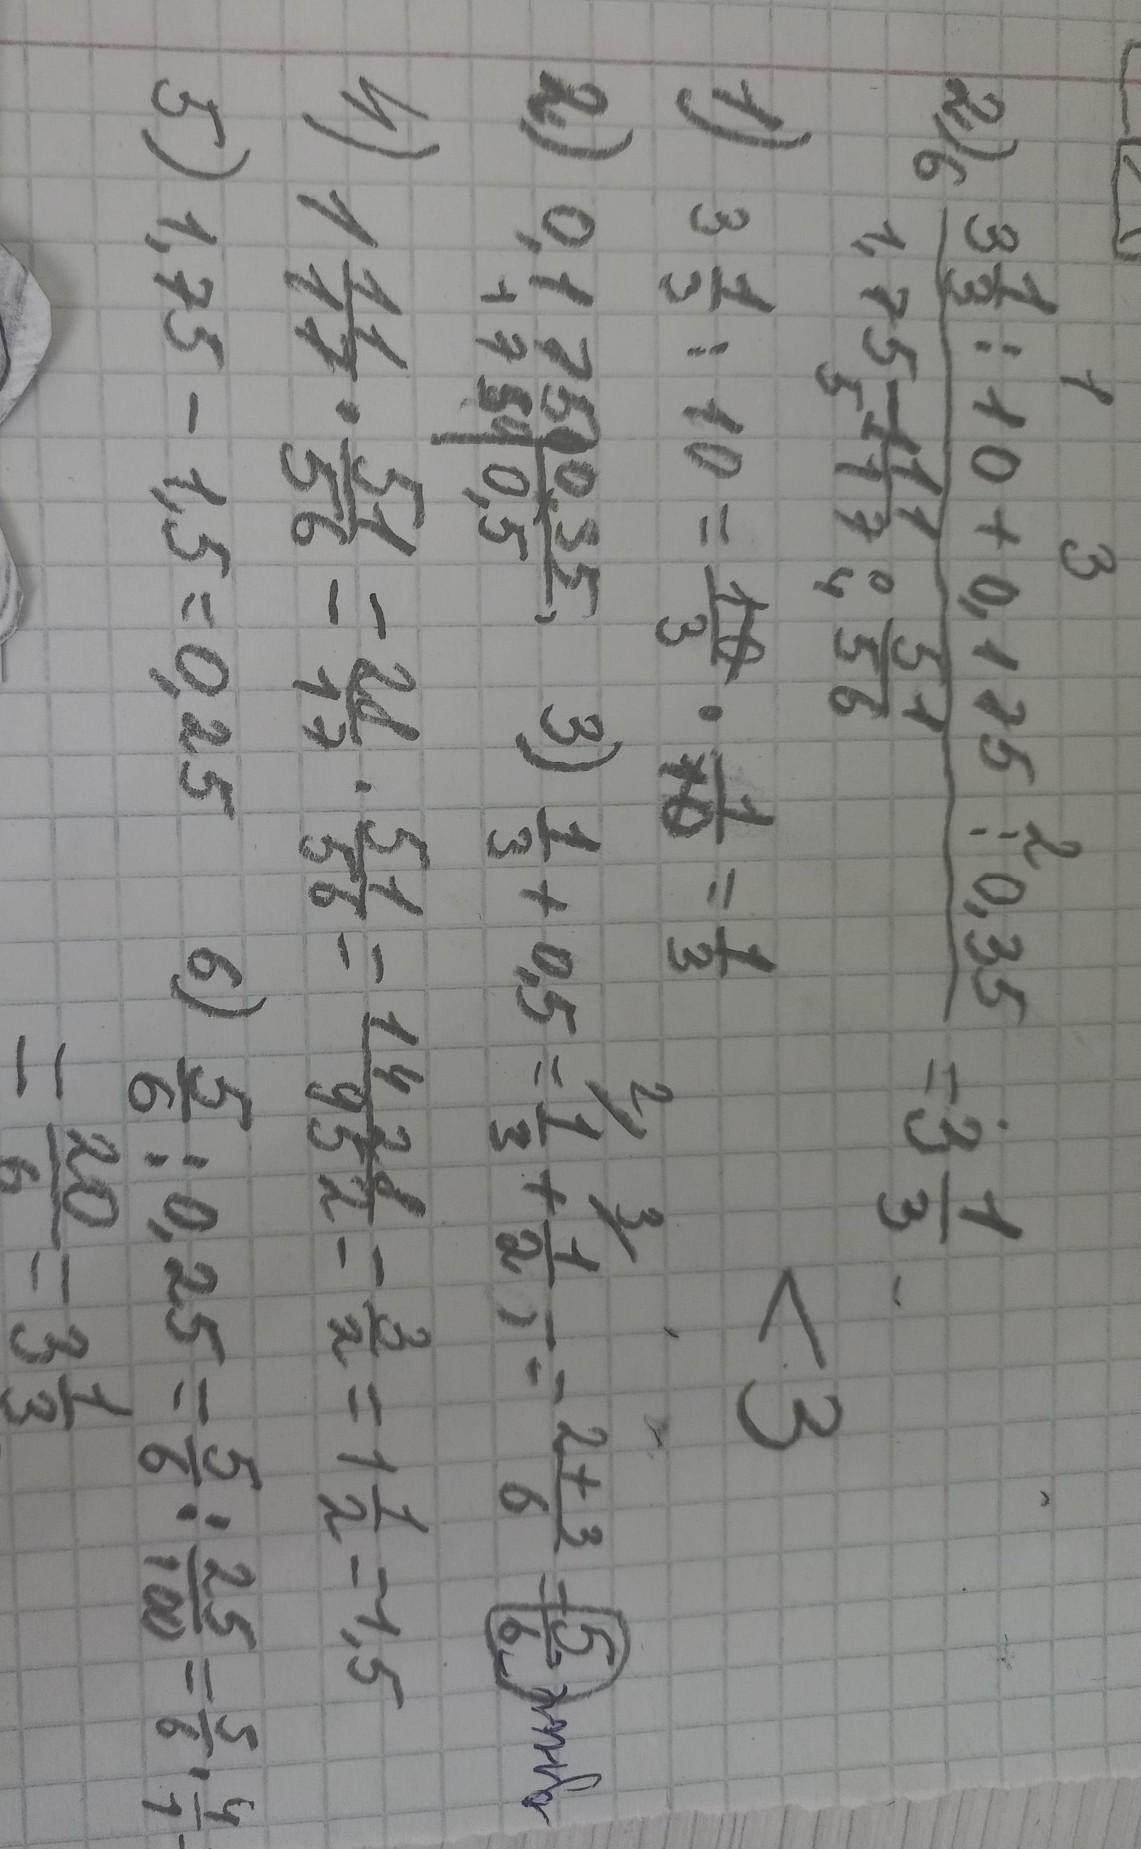 1 3 2
2) 3 1/3 : 10 + 0,175 : 0,35
6
1,75 - 1 11/17 · 51/56 = 3 1/3
5 4
< 3
1) 3 1/3 : 10 = 10/3 · 1/10 = 1/3
2) 0,175 0,35
175 0,5
3) 1/3 + 0,5 = 1/3 + 1/2 = 2+3/6 = 5/6
4) 1 11/17 · 51/56 = 28/17 · 51/56 = 1428/952 = 3/2 = 1 1/2 = 1,5
5) 1,75 - 1,5 = 0,25
6) 5/6 : 0,25 = 5/6 : 25/100 = 5/6 · 4/1
= 20/6 = 3 1/3